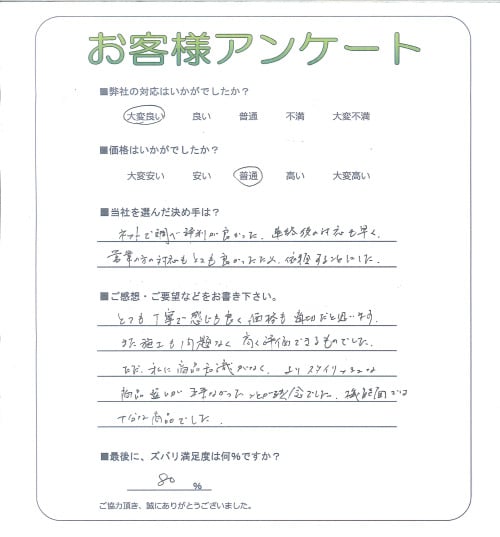 お客様アンケート
■弊社の対応はいかがでしたか？
大変良い 良い 普通 不満 大変不満
■価格はいかがでしたか？
大変安い 安い 普通 高い 大変高い
■当社を選んだ決め手は？
ネットで調べ評判が良かった。連絡後の対応も早く、
営業の方の対応もとても良かったため、依頼することにした。
■ご感想・ご要望などをお書き下さい。
とても丁寧で感じも良く価格も適切だと思います。
また施工も問題なく高く評価できるものでした。
ただ、私に商品知識がなく、よりスタイリッシュな
商品選びが出来なかったことが残念でした。機能面では
十分な商品でした。
■最後に、ズバリ満足度は何％ですか？
80 %
ご協力頂き、誠にありがとうございました。